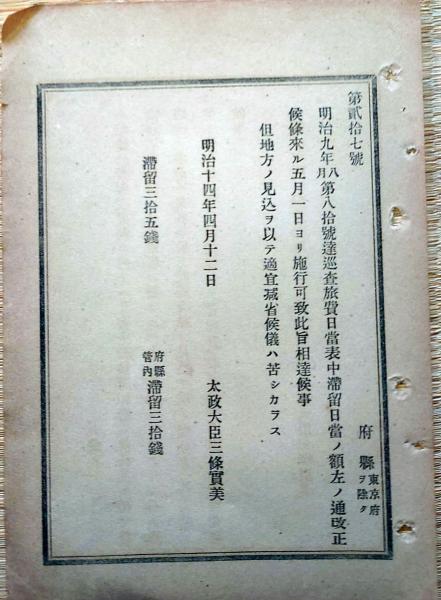 第貳拾七號
府縣 東京府ヲ除ク
明治九年八月第八拾號達巡査旅費日當表中滯留日當ノ額左ノ通改正
候條來ル五月一日ヨリ施行可致此旨相達候事
但地方ノ見込ヲ以テ適宜减省候儀ハ苦シカラス
明治十四年四月十二日
太政大臣三條實美
滯留三拾五錢
府縣管內滯留三拾錢